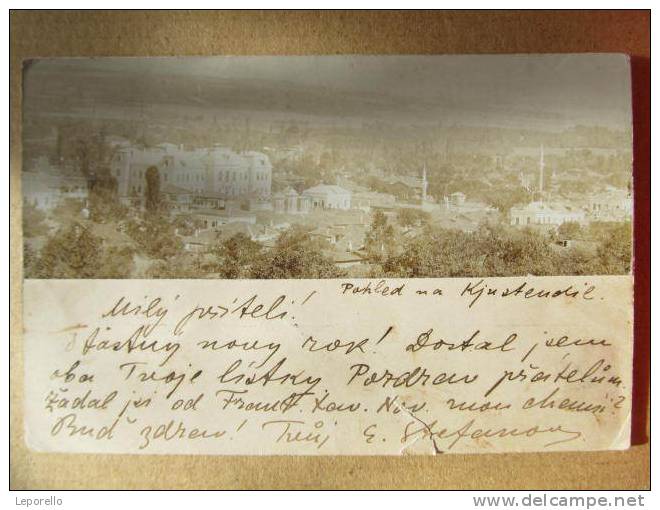 Pohled na Kjustendil.
Milý příteli!
Šťastny novy rok! Dostal jsem
oba Tvoje lístky Pozdrav přátelům.
Žádal jsi od Frant. Xav. Nov. mou chemii?
Buď zdráv! Tvůj E. Stefanov
Leporello
delcampe.net